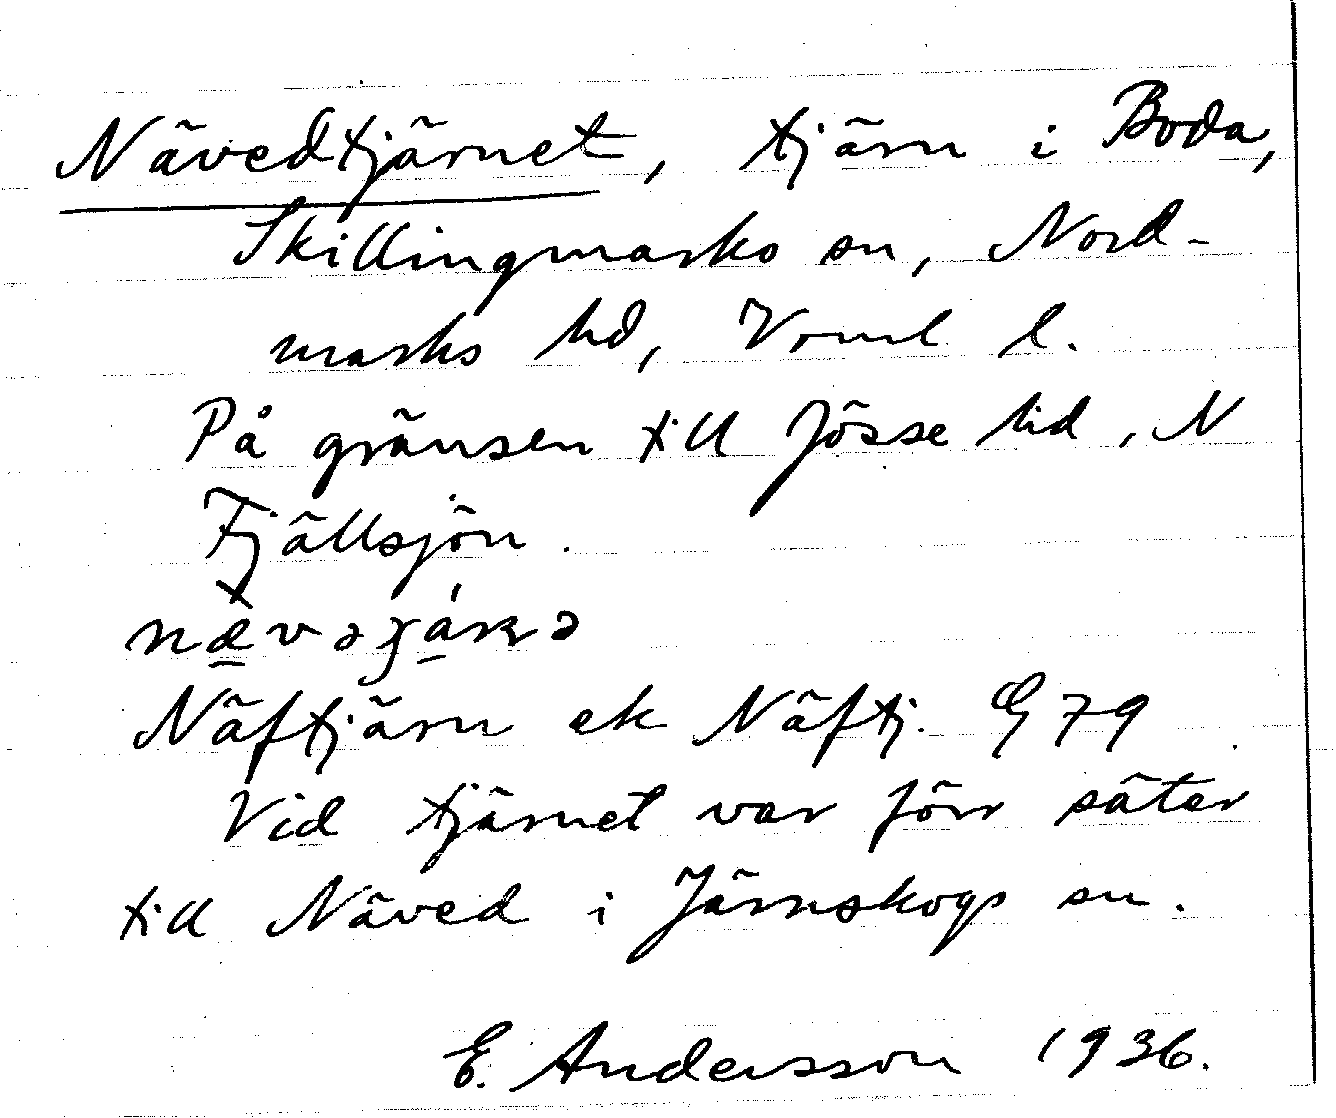 Nävedtjärnet, tjärn i Boda,
Skillingmarks sn, Nord-
marks hd, Vrml l.
På gränsen till Jösse hd, N
Fjällsjön.
Näftjärn ek Näftj. G 79
Vid tjärnet var förr säter
till Näved i Järnskogs sn.
E. Andersson 1936.